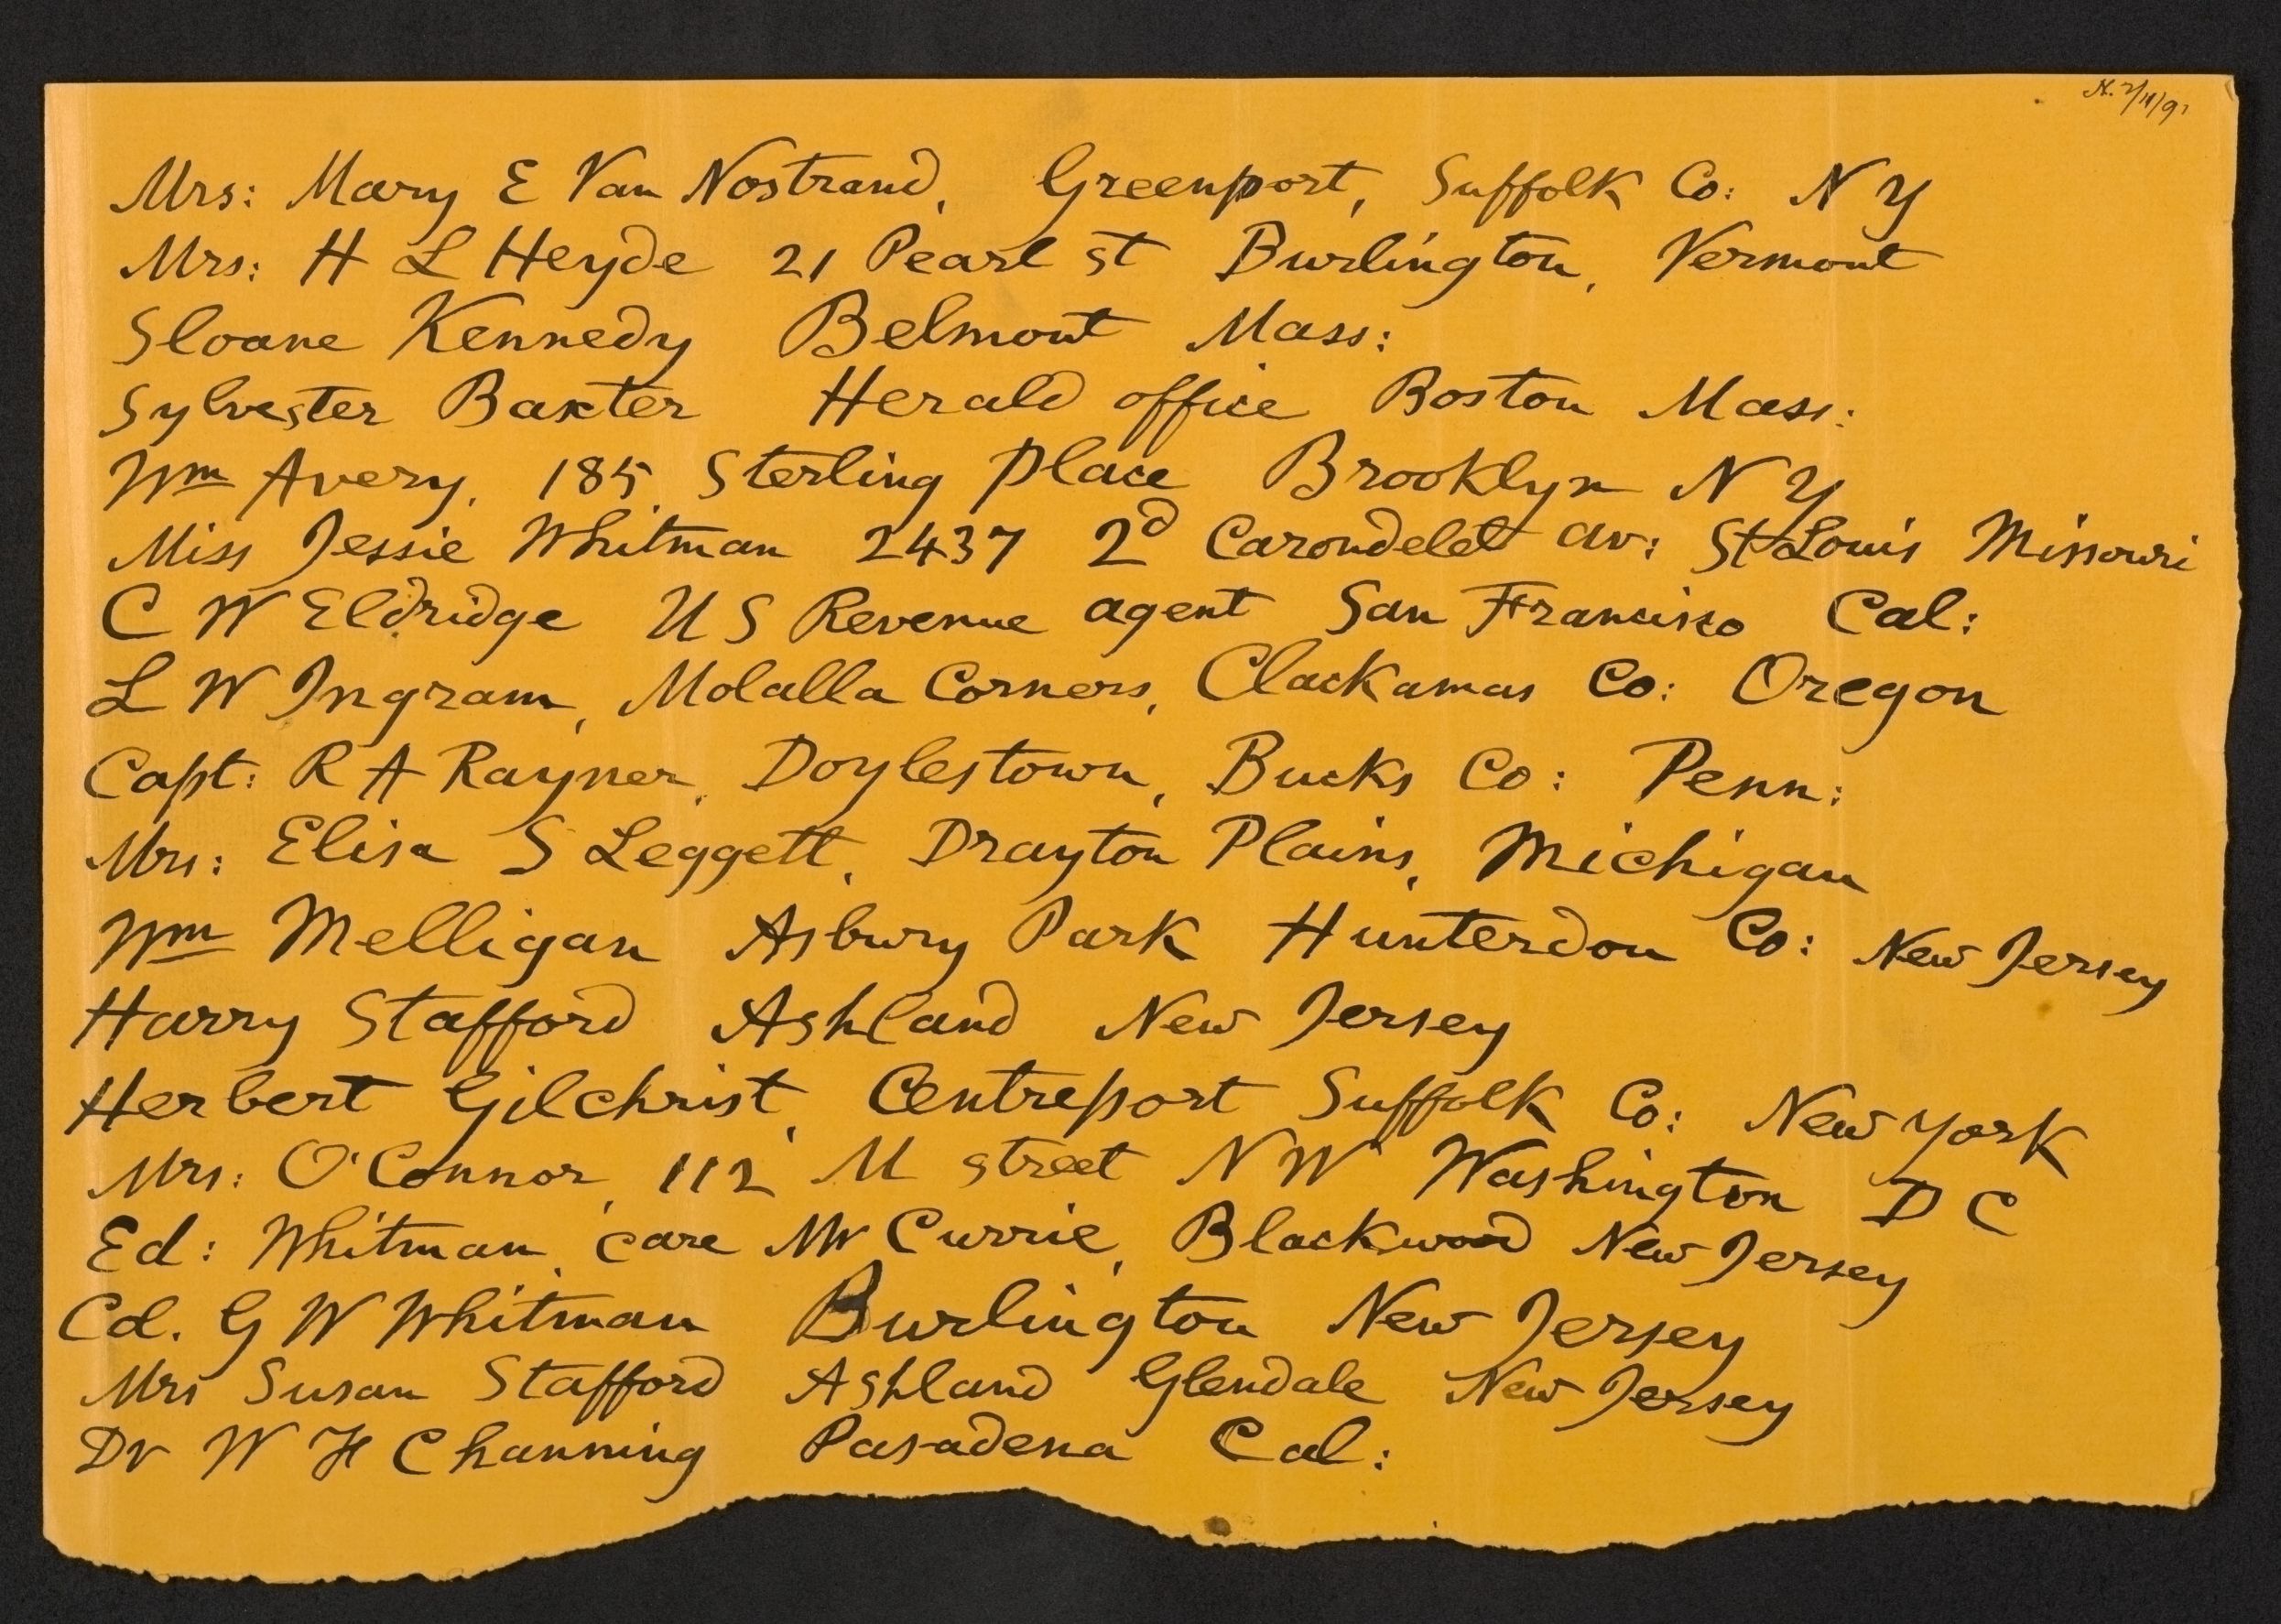 N. 2/11/91
Mrs: Mary E Van Nostrand, Greenport, Suffolk Co: N Y
Mrs: H L Heyde 21 Pearl st Burlington, Vermont
Sloane Kennedy Belmont Mass:
Sylvester Baxter Herald office Boston Mass:
Wm Avery, 185 Sterling place Brooklyn N Y
Miss Jessie Whitman 2437 2d Carondelet av: St Louis Missouri
C W Eldridge U S Revenue agent San Francisco Cal:
L W Ingram, Molalla Corners, Clackamas Co: Oregon
Capt: R A Rayner, Doylestown, Bucks Co: Penn:
Mrs: Elisa S Leggett, Drayton Plains, Michigan
Wm Melligan Asbury Park Hunterdon Co: New Jersey
Harry Stafford Ashland New Jersey
Herbert Gilchrist, Centreport Suffolk Co: New York
Mrs: O'Connor, 112 M street N W Washington D C
Ed: Whitman, care Mr Currie, Blackwood New Jersey
Col. G W Whitman Burlington New Jersey
Mrs Susan Stafford Ashland Glendale New Jersey
Dr W F Channing Pasadena Cal: